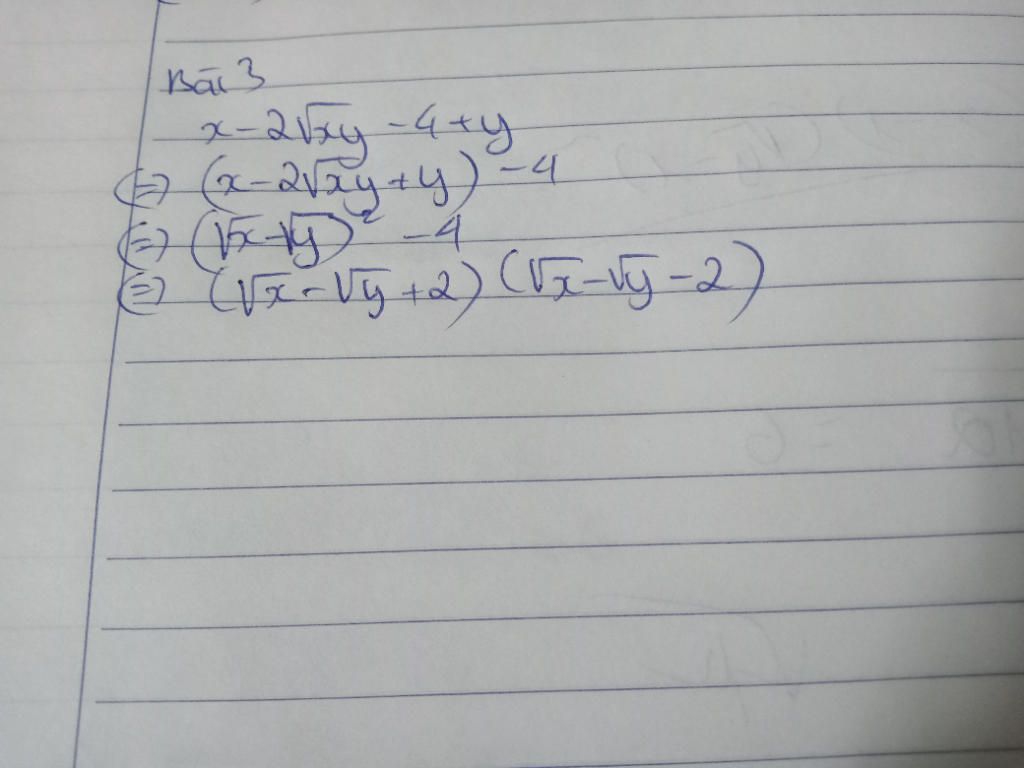 Bài 3
x - 2√xy - 4 + y
⇔ (x - 2√xy + y) - 4
⇔ (√x - √y)² - 4
⇔ (√x - √y + 2) (√x - √y - 2)